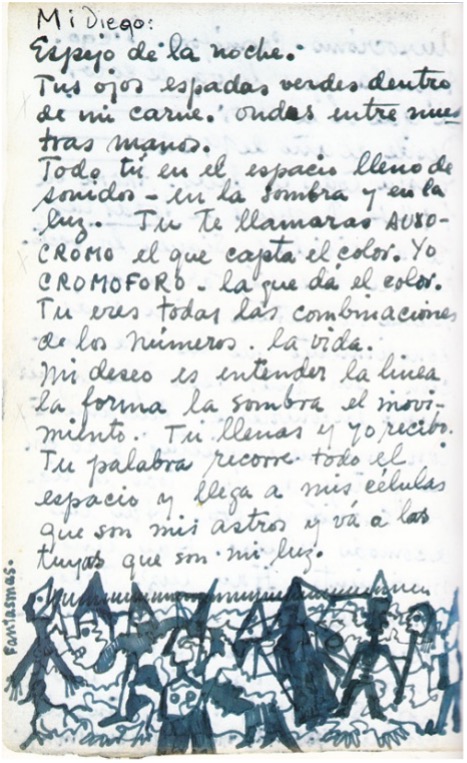 Mi Diego:
Espejo de la noche.
Tus ojos espadas verdes dentro
de mi carne. ondas entre nues
tras manos.
Todo tú en el espacio lleno de
sonidos - en la sombra y en la
luz. Tu te llamaras AUXO-
CROMO el que capta el color. Yo
CROMOFORO - la que dá el color.
Tu eres todas las combinaciones
de los números. la vida.
mi deseo es entender la linea
la forma la sombra el movi-
miento. Tu llenas y yo recibo.
Tu palabra recorre todo el
espacio y llega a mis células
que son mis astros y va a las
tuyas que son mi luz.
Fantasmas.